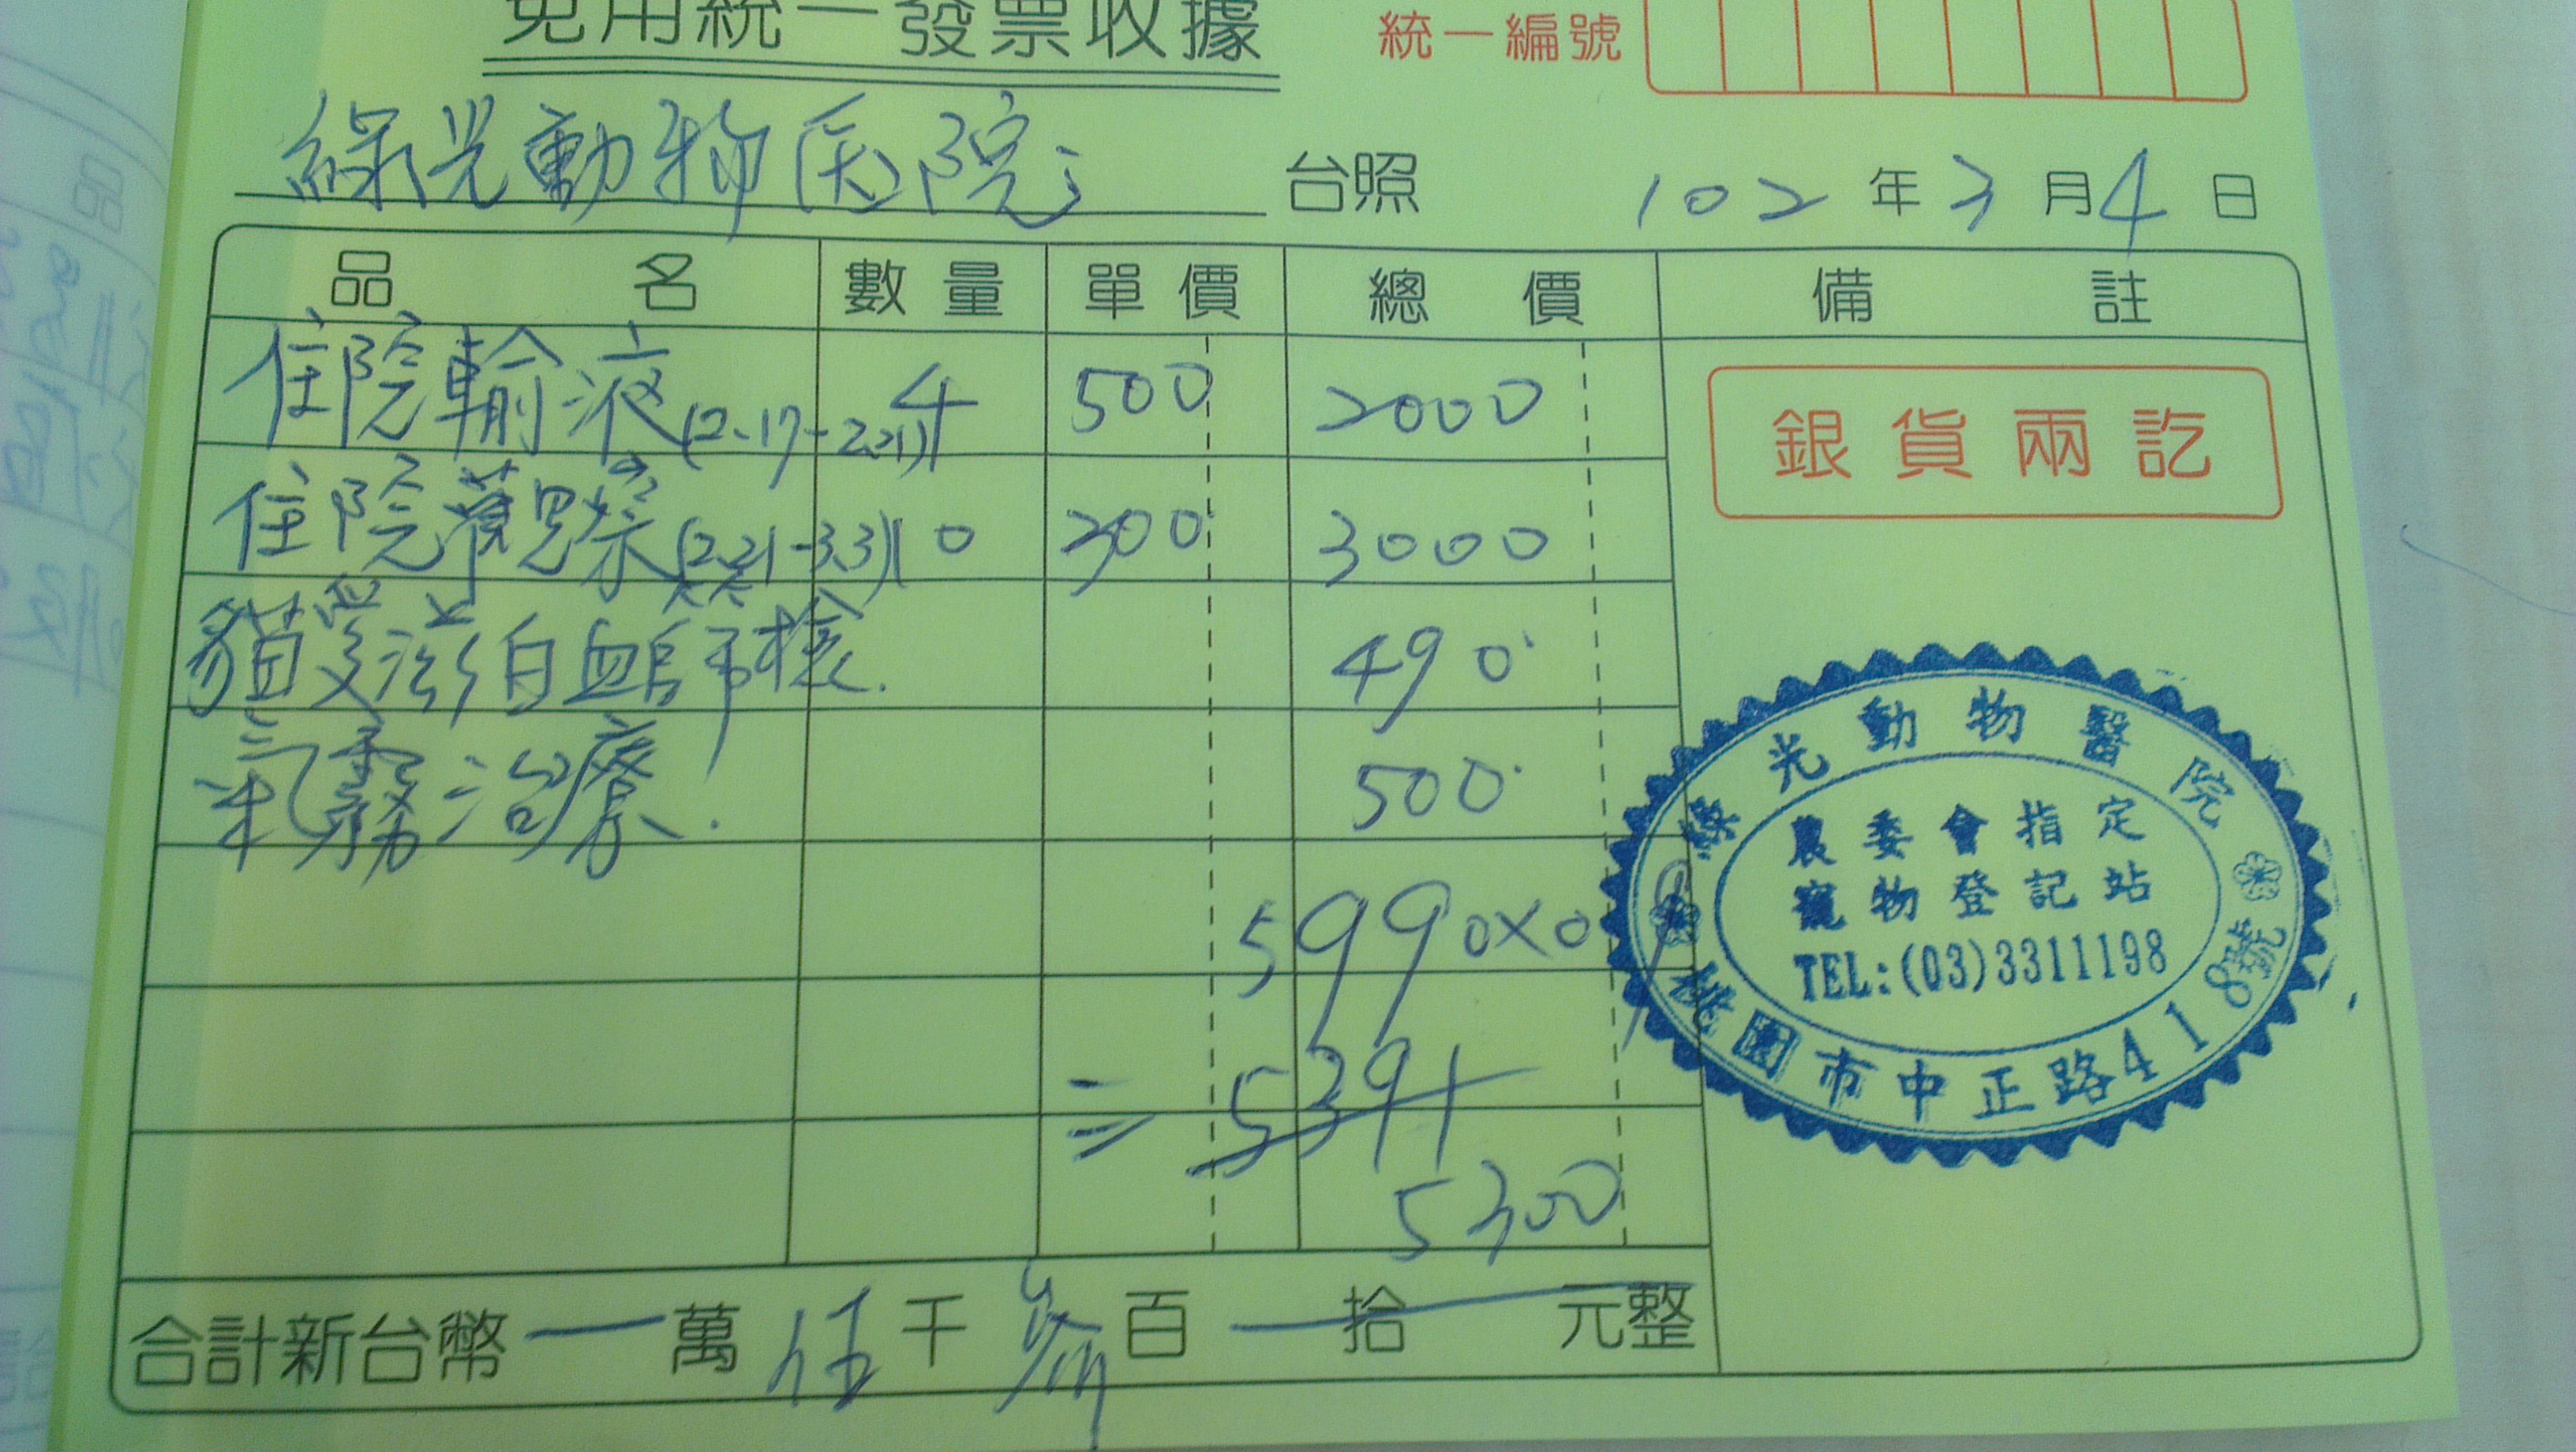 免用統一發票收據
統一編號
綠光動物医院
台照
102年3月4日
品名 數量 單價 總價 備註
住院輸液(2.17-2.21) 4 500 2000
住院觀察(2.21-3.3) 10 300 3000
銀貨兩訖
貓愛滋白血病篩檢. 490
氣霧治療. 500
5990×0.9
= 5391
5300
合計新台幣 萬 伍千 叁百 拾 元整
綠光動物醫院
農委會指定
寵物登記站
TEL:(03)3311198
桃園市中正路418號